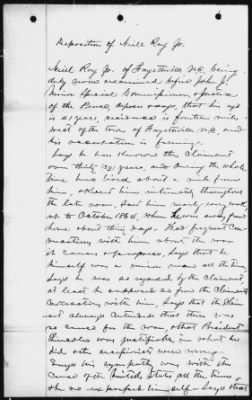 Deposition of Neill Ray Jr.
Neill Ray Jr. of Fayetteville N.C. being
duly sworn examined before John J.
Minor Special Commissioner
of the Peace, deposes says, that his age
is years, residence is fourteen miles
west of the town of Fayetteville N.C. and
his occupation is farming.
Says he has known the Claimant
over thirty years, and during the whole
time has lived about a mile from
him, & knew him intimately throughout
the late war, saw him nearly every week
up to October 1864, when he was away from
home about thirty days. Had frequent con-
versations with him about the war
its causes & progress, says that he
himself was a union man all the time,
Says he was so regarded by the Claimant
at least he supposes so from the Claimants
conversation with him, Says that the Claim-
ant always contended that there was
no cause for the war, & that President
Lincoln was justifiable in what he
did & the secessionists were wrong.
Says his sympathy was with the
cause of the United States all the time,
&